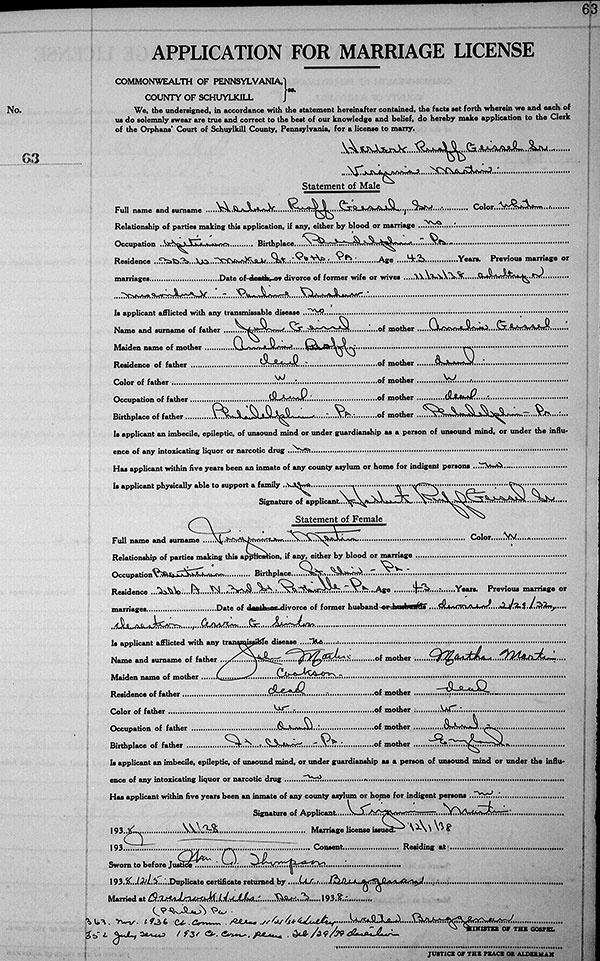 63
APPLICATION FOR MARRIAGE LICENSE
COMMONWEALTH OF PENNSYLVANIA,
COUNTY OF SCHUYLKILL } ss.
No.
We, the undersigned, in accordance with the statement hereinafter contained, the facts set forth wherein we and each of
us do solemnly swear are true and correct to the best of our knowledge and belief, do hereby make application to the Clerk
of the Orphans' Court of Schuylkill County, Pennsylvania, for a license to marry.
63
Herbert Ruoff Geissel Sr
Virginia Martin
Statement of Male
Full name and surname Herbert Ruoff Geissel, Sr Color White
Relationship of parties making this application, if any, either by blood or marriage no
Occupation Birthplace Philadelphia - Pa
Residence W Market St Potts. Pa Age 43 Years. Previous marriage or
marriages Date of death, or divorce of former wife or wives 11/21/28 adultery
Is applicant afflicted with any transmissable disease no
Name and surname of father John Geissel of mother Amelia Geissel
Maiden name of mother Amelia Ruoff
Residence of father dead of mother dead
Color of father W of mother W
Occupation of father dead of mother dead
Birthplace of father Philadelphia Pa of mother Philadelphia - Pa
Is applicant an imbecile, epileptic, of unsound mind or under guardianship as a person of unsound mind, or under the influ-
ence of any intoxicating liquor or narcotic drug no
Has applicant within five years been an inmate of any county asylum or home for indigent persons no
Is applicant physically able to support a family yes
Signature of applicant Herbert Ruoff Geissel Sr
Statement of Female
Full name and surname Virginia Martin Color W
Relationship of parties making this application, if any, either by blood or marriage
Occupation Birthplace St Clair - Pa
Residence 206 A N 2nd St Pottsville - Pa Age 43 Years. Previous marriage or
marriages Date of death or divorce of former husband or husbands divorced
desertion,
Is applicant afflicted with any transmissible disease no
Name and surname of father Martin of mother Martha Martin
Maiden name of mother Cookson
Residence of father dead of mother dead
Color of father W of mother W
Occupation of father dead of mother dead
Birthplace of father St. Clair - Pa of mother England
Is applicant an imbecile, epileptic, of unsound mind, or under guardianship as a person of unsound mind or under the influ-
ence of any intoxicating liquor or narcotic drug no
Has applicant within five years been an inmate of any county asylum or home for indigent persons no
Signature of Applicant Virginia Martin
193 8 11/28 Marriage license issued 12/1/38
193 Consent Residing at
Sworn to before Justice Wm. O. Thompson
193 8 12/5 Duplicate certificate returned by
Married at Dec. 3 193 8
(Phila) Pa
Nov. 1936
MINISTER OF THE GOSPEL
July 1931
JUSTICE OF THE PEACE OR ALDERMAN